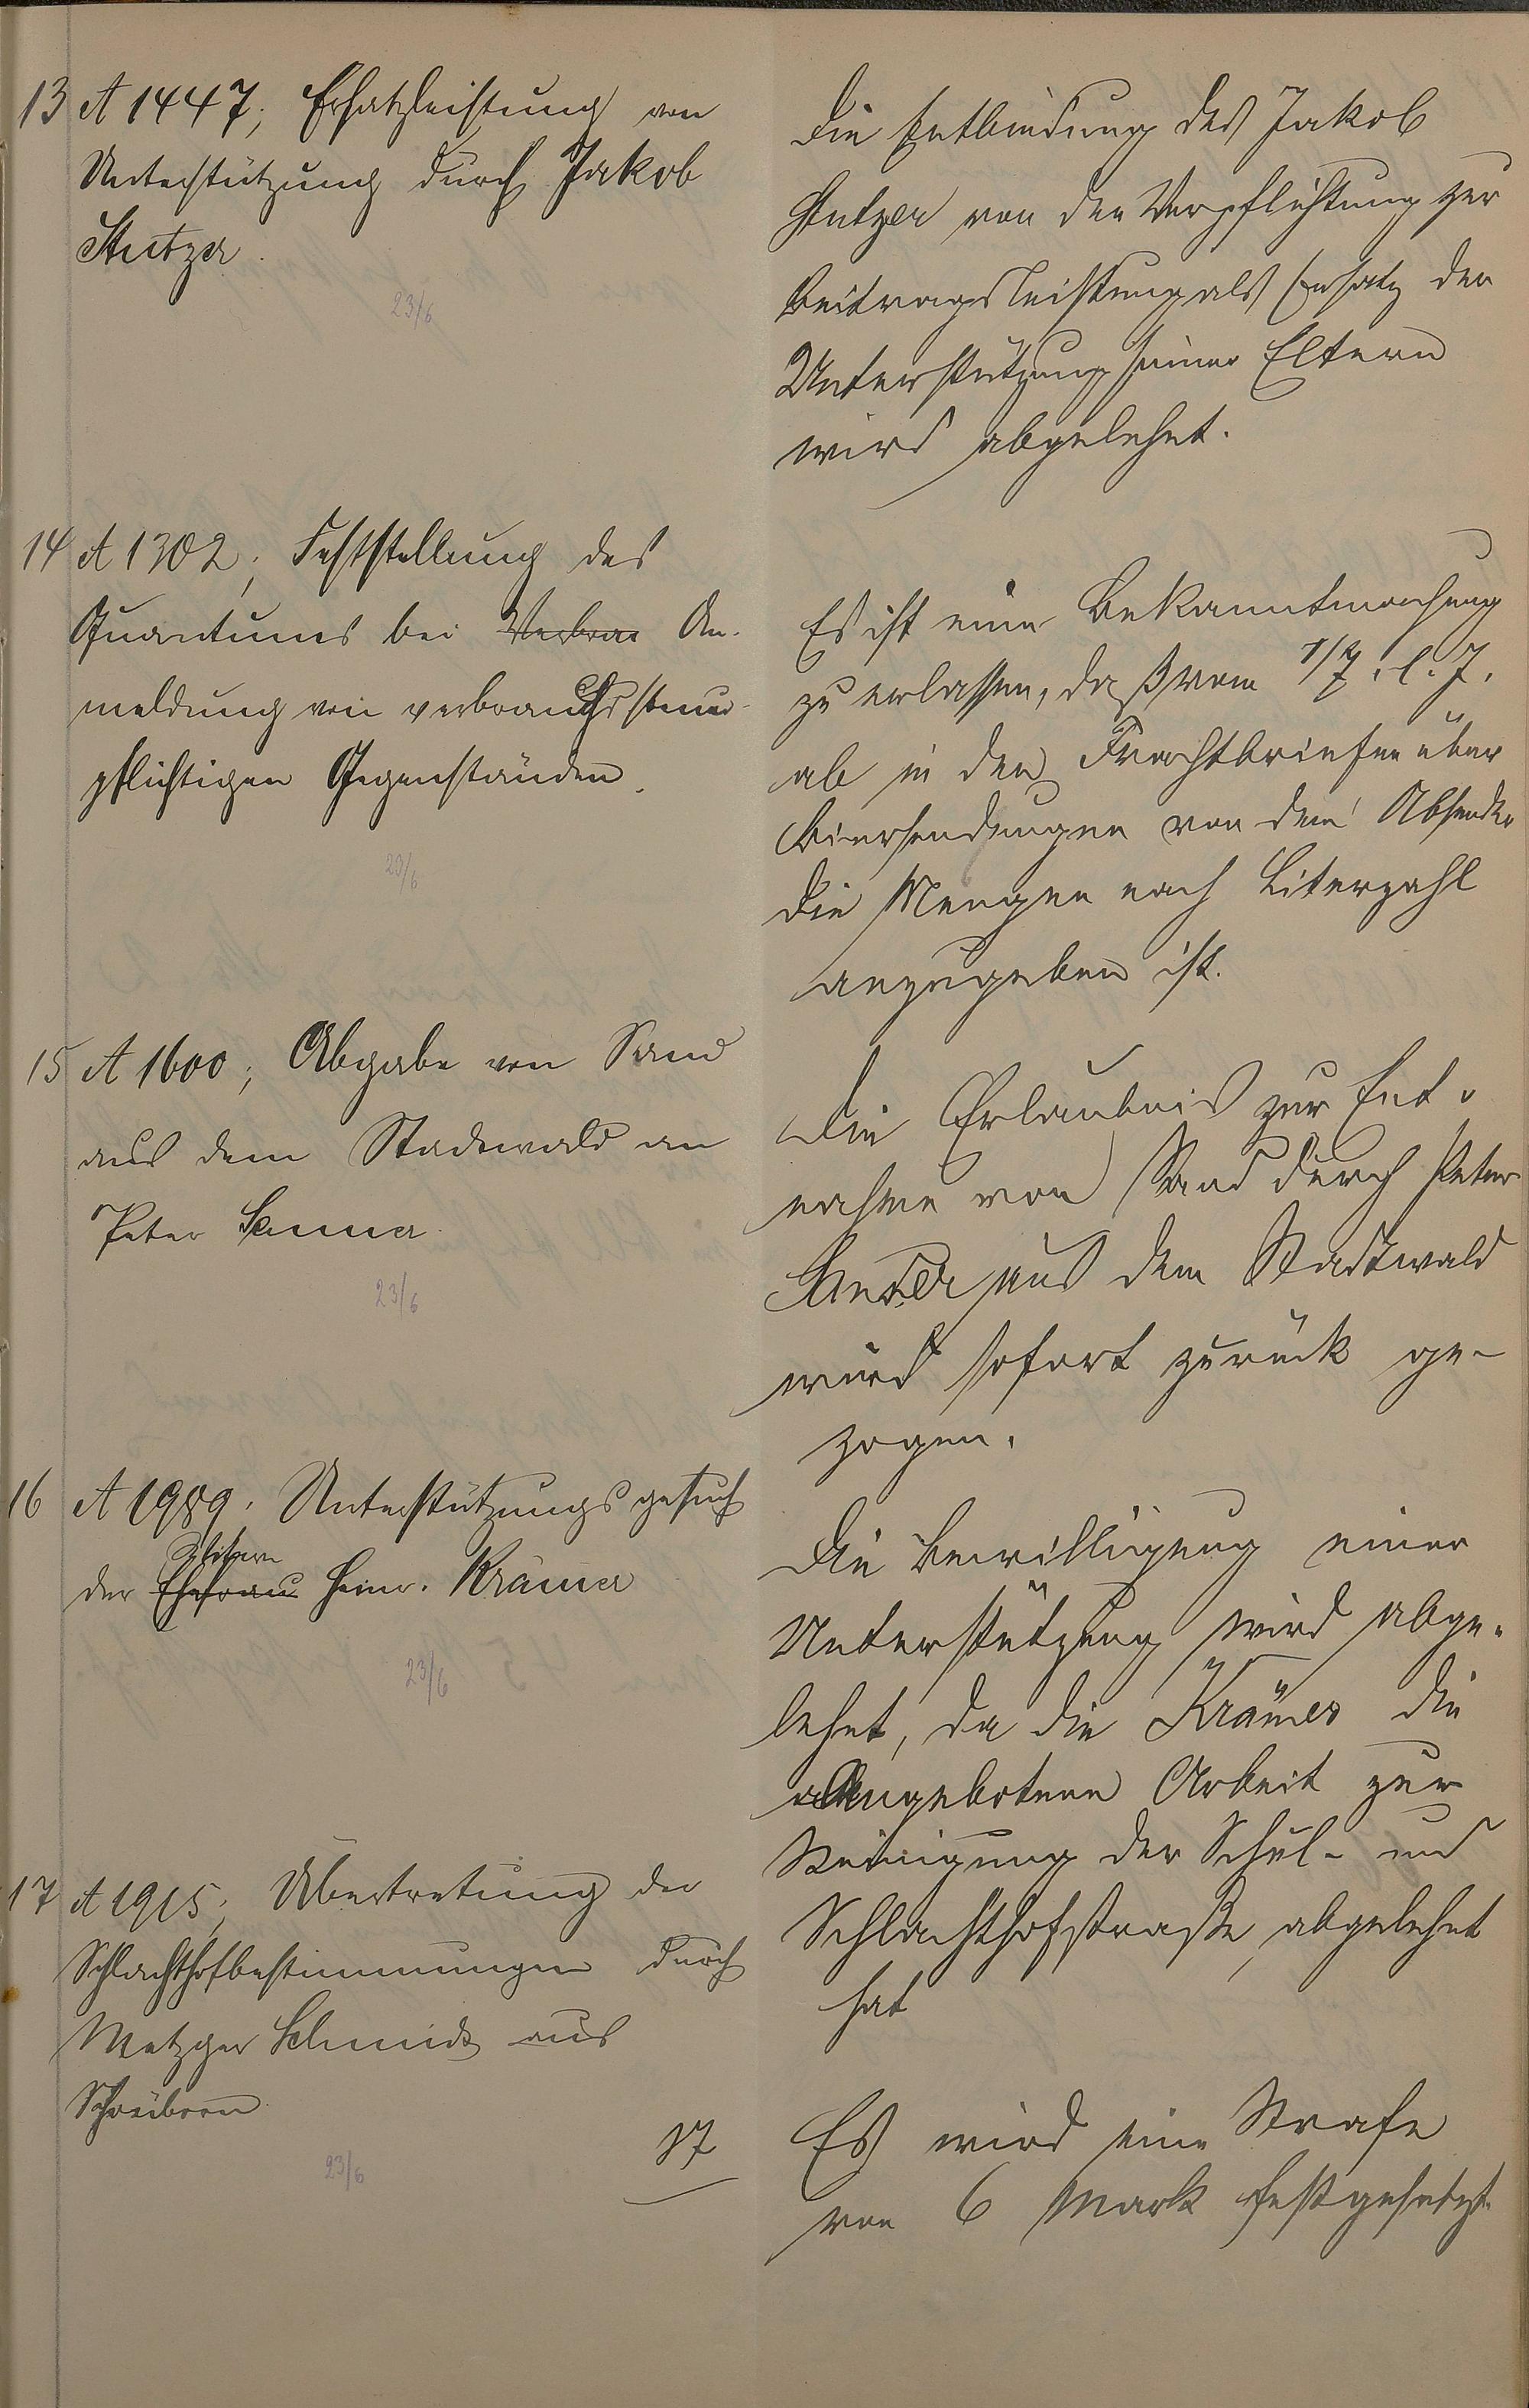 13 A 1447; Ersatzleistung von
Unterstützung durch Jakob
Stutzer.
23/6
Die Entbindung des Jakob
Stutzer von der Verpflichtung zur
Beitragsleistung als Ersatz der
Unterstützung seiner Eltern
wird abgelehnt.
14 A 1302; Feststellung des
Quantums bei Verbrau An-
meldung von verbrauchssteuer-
pflichtigen Gegenständen.
23/6
Es ist eine Bekanntmachung
zu erlassen, daß vom 1/7. l. J.
ab in den Frachtbriefen über
Biersendungen von dem Absender
die Mengen nach Literzahl
anzugeben ist.
15 A 1600; Abgabe von Sand
aus dem Stadtwald an
Peter
23/6
Die Erlaubnis zur Ent-
nahme von Sand durch Peter
aus dem Stadtwald
wird sofort zurück ge-
zogen.
16 A 1989. Unterstützungsgesuch
der Ehefrau Heinr. Krämer
23/6
Die Bewilligung einer
Unterstützung wird abge-
lehnt, da die Krämer die
angebotene Arbeit zur
Reinigung der Schul- und
Schlachthofstraße, abgelehnt
hat
17 A 1915; Übertretung der
Schlachthofbestimmungen durch
Metzger Schmidt aus
23/6
17
Es wird eine Strafe
von 6 Mark festgesetzt.